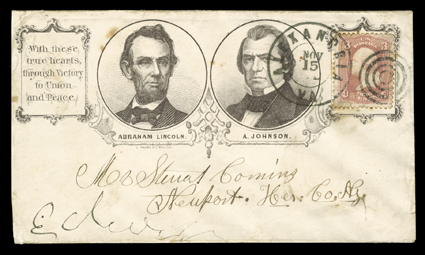 With these
true hearts,
through Victory
to Union
and Peace.
ABRAHAM LINCOLN.
A. JOHNSON.
ALEXANDRIA
NOV
15
VA.
3
Mr Stuart Coming
Newport. Her. Co. Ny